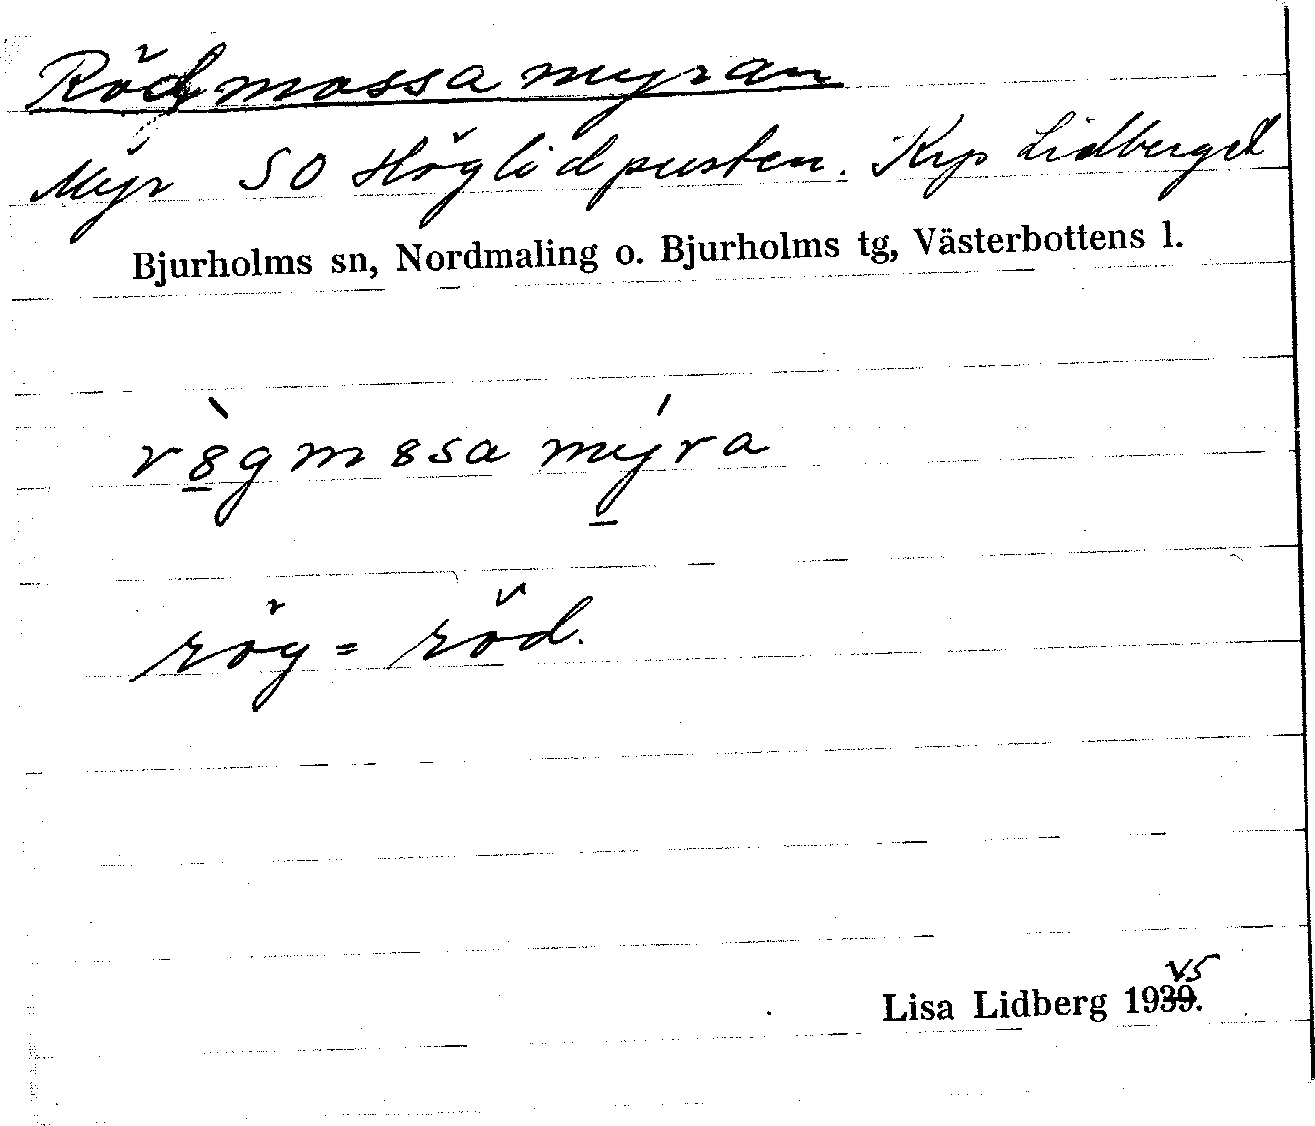 Rödmossamyran
Myr SO Höglidpusten. Krp Lidberget
Bjurholms sn, Nordmaling o. Bjurholms tg, Västerbottens l.
r8̲̀gm8sa mý̲ra
rög = röd.
45
Lisa Lidberg 1939.